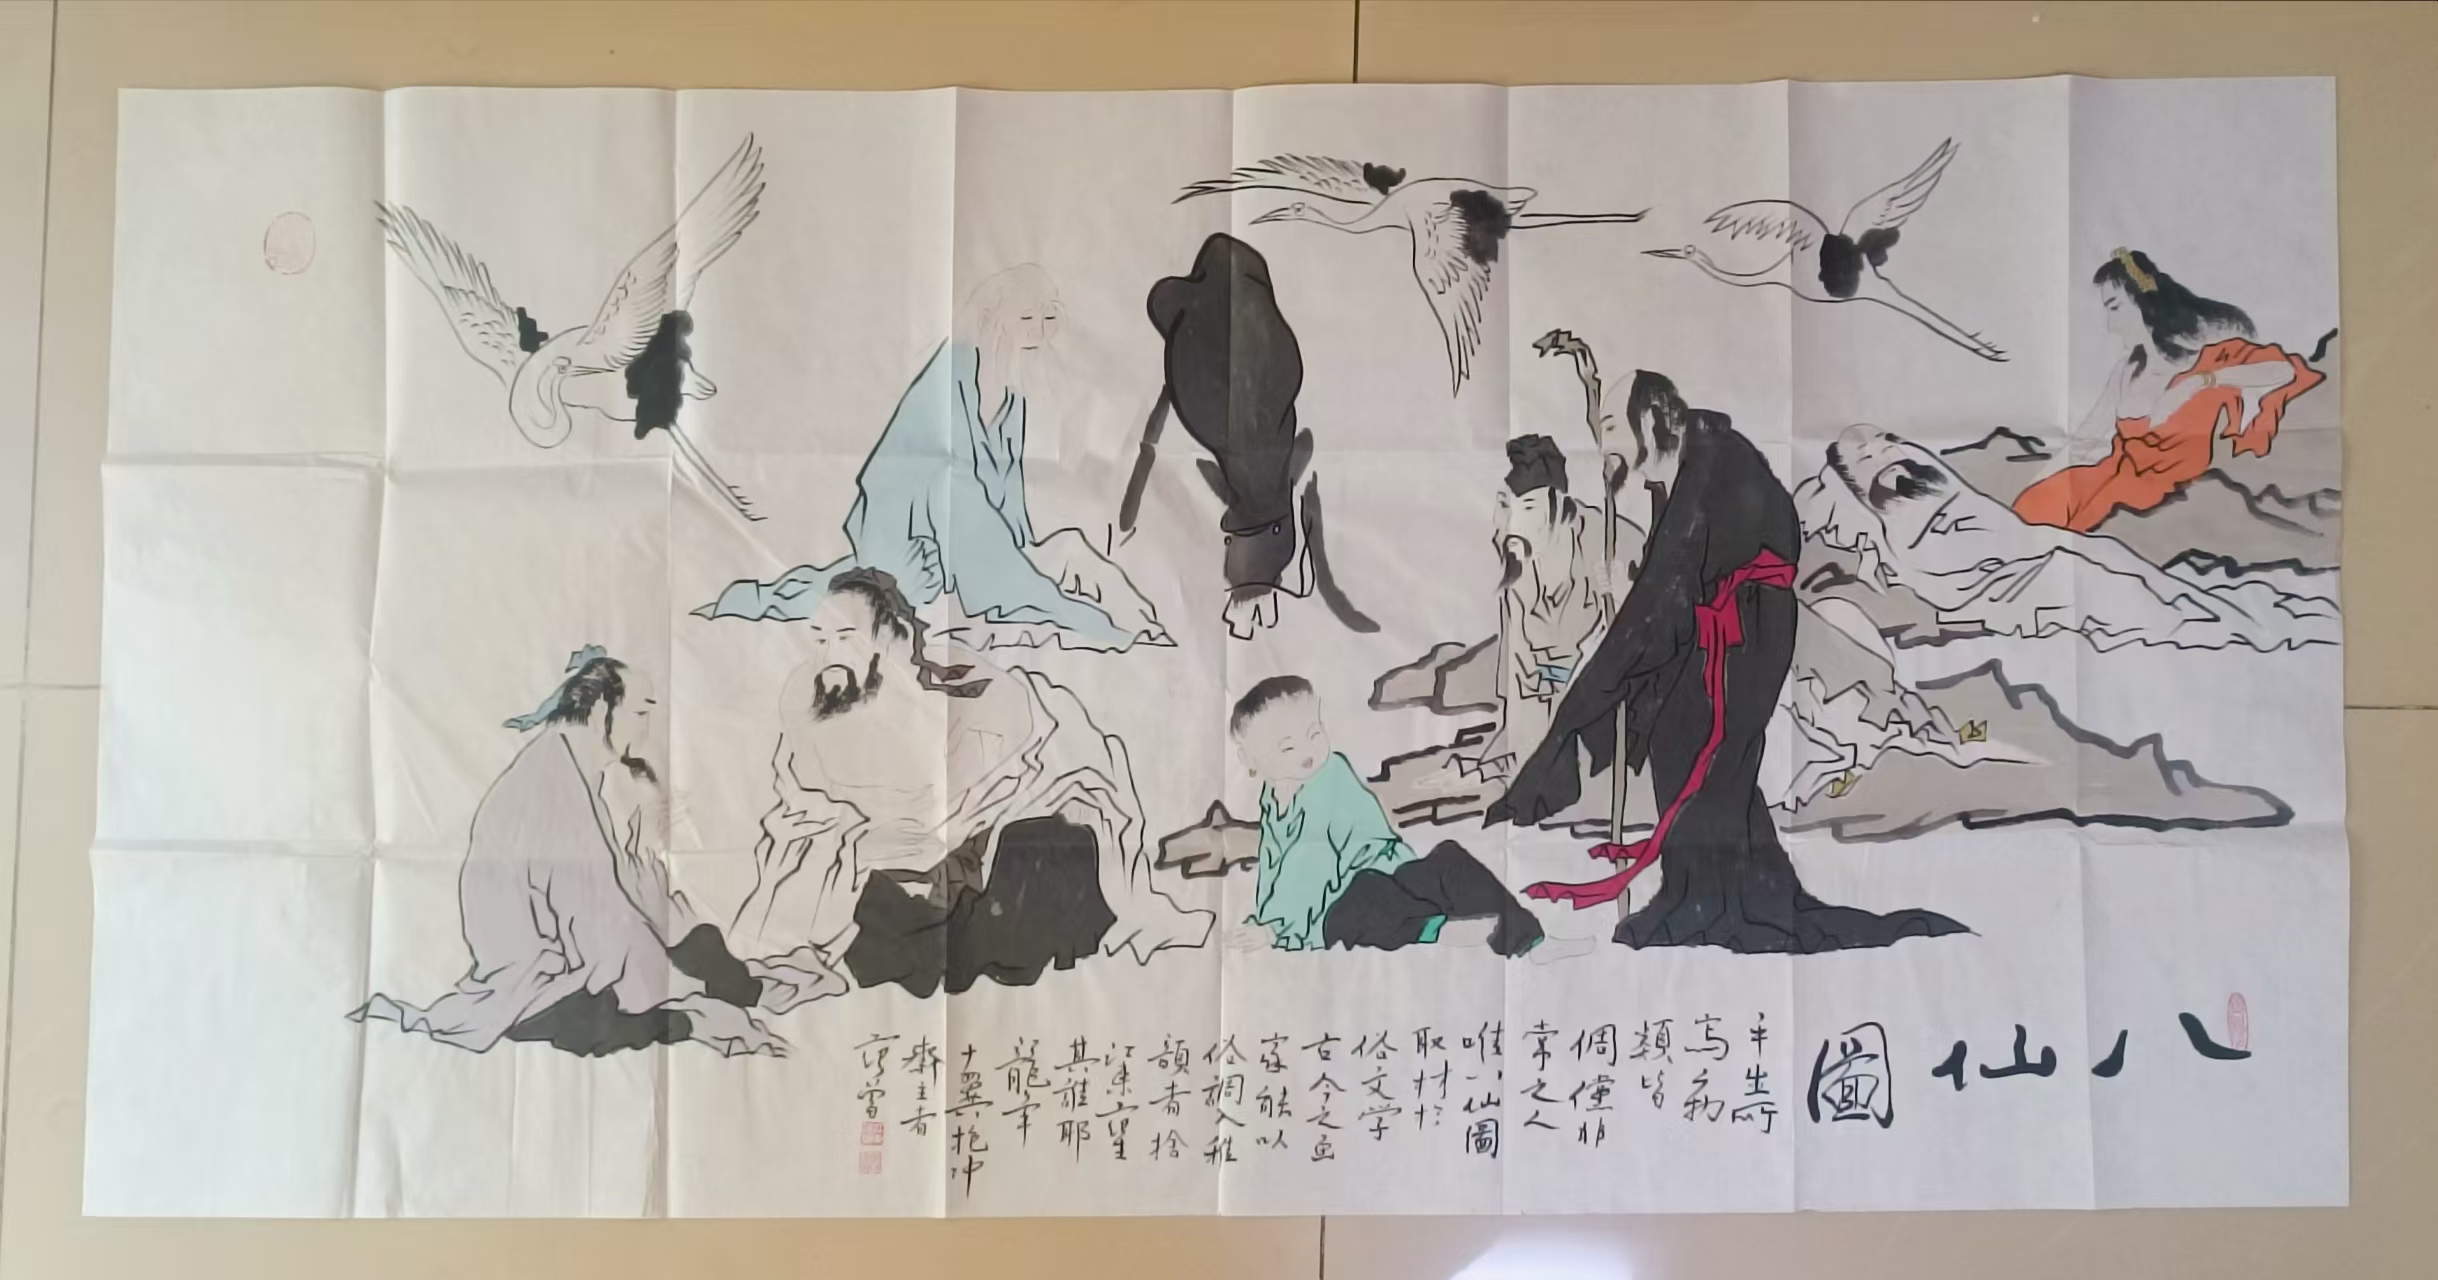 八仙圖
平生所
寫
類皆
倜儻非
常之人
唯八仙圖
取材於
俗文学
古今之画
家能以
俗調入雅
韻者捨
江東望
其誰耶
龍年
十翼抱冲
齋主者
范曾